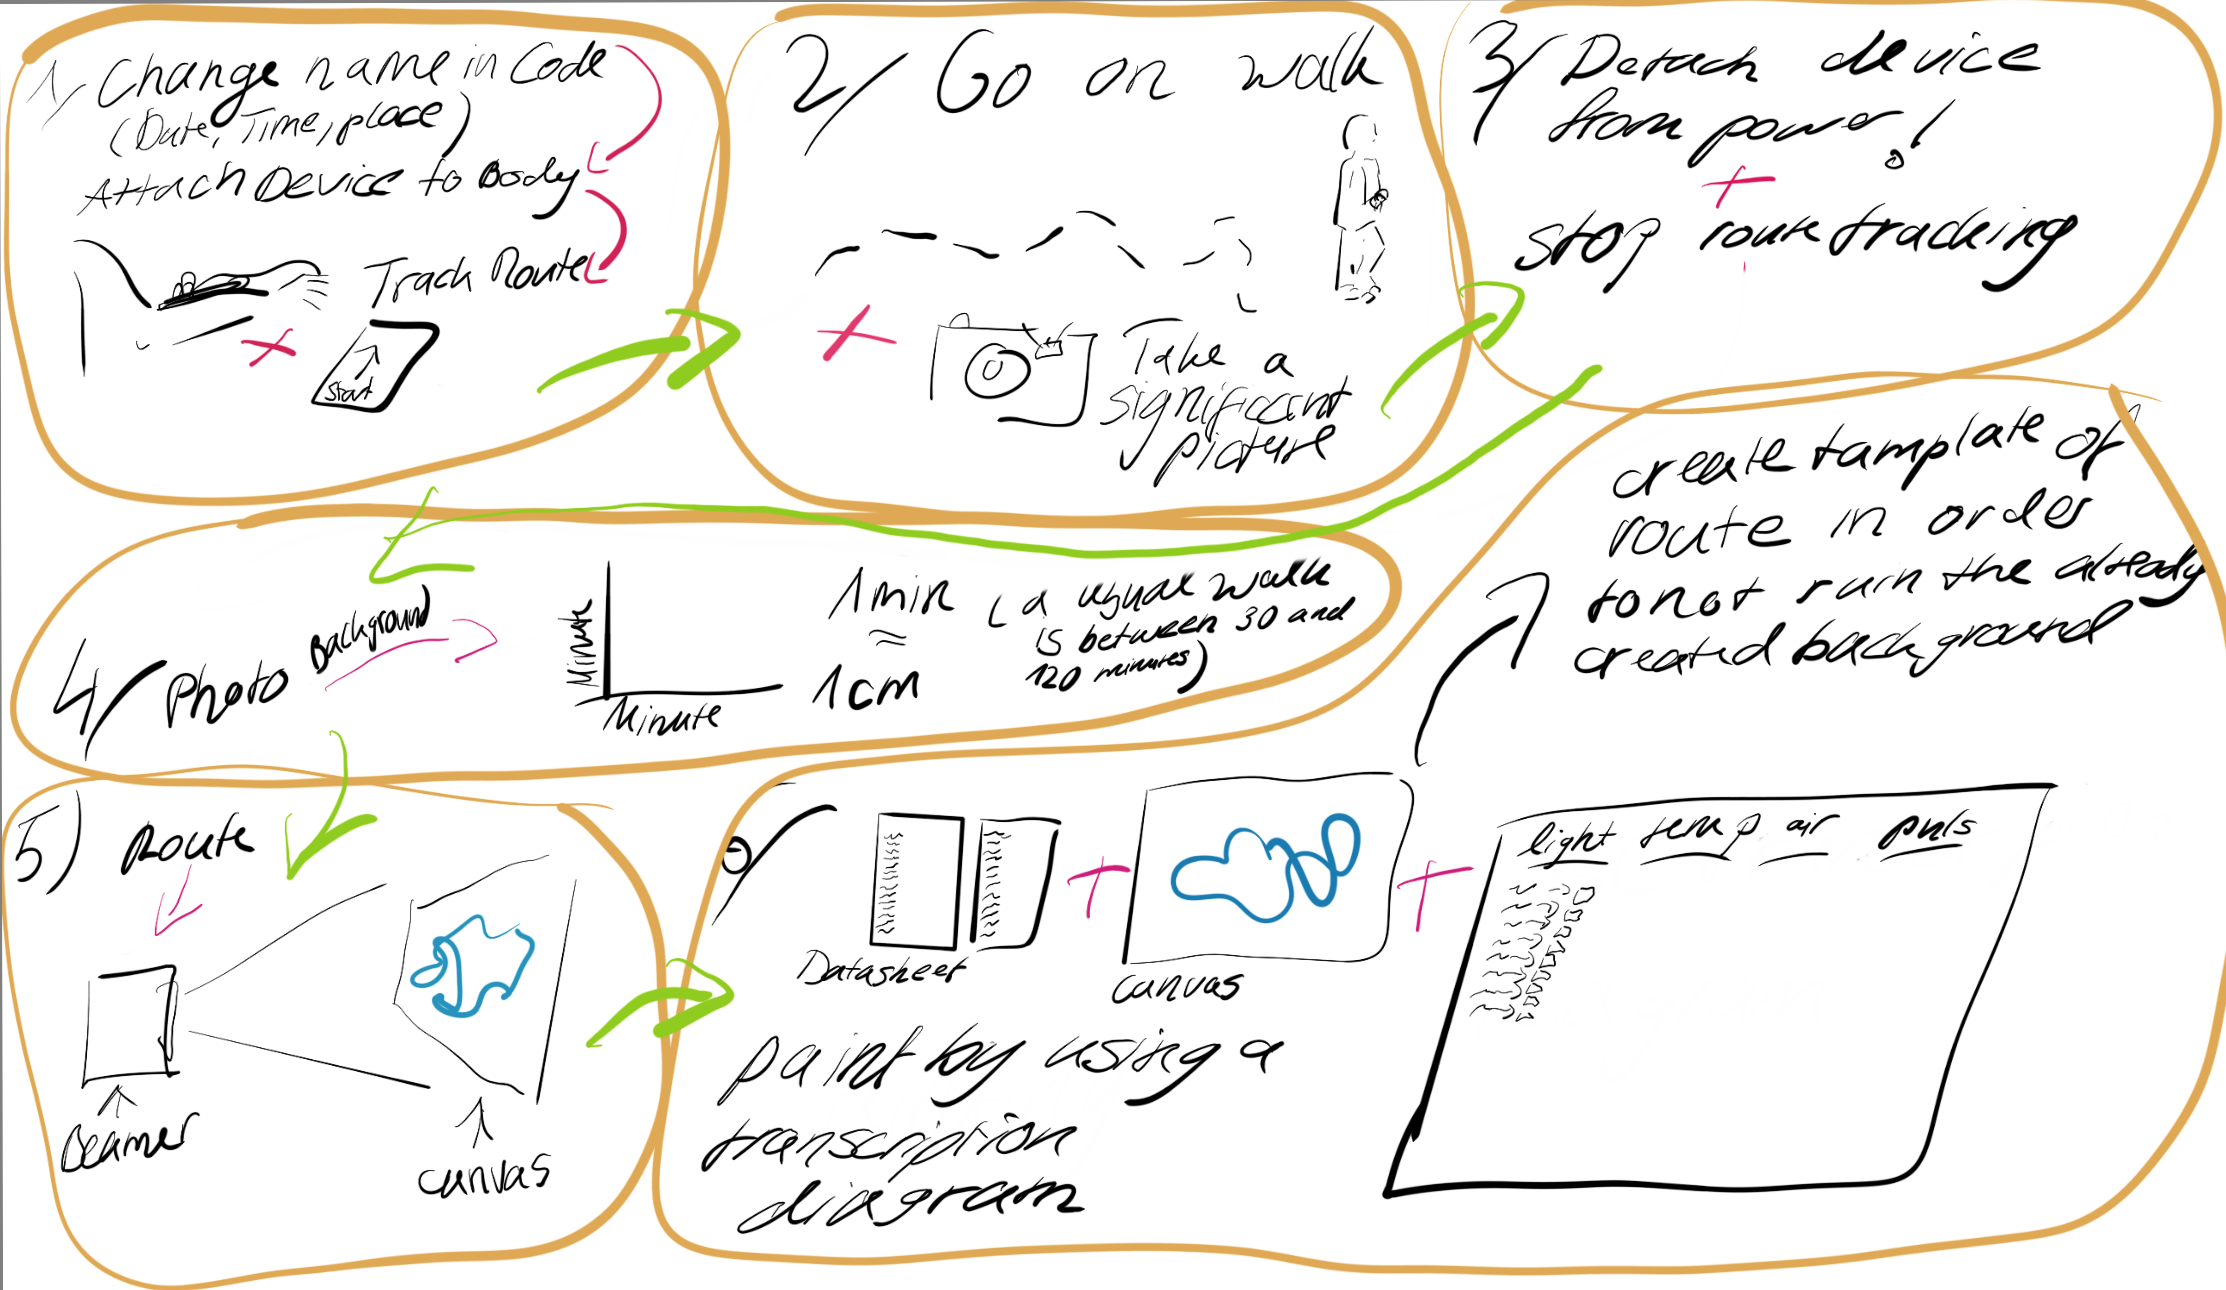 1/ Change name in Code
(Date, Time, place)
Attach Device to Body
Track Route
Start
2/ Go on walk
Take a
significant
picture
3/ Detach device
from power!
+
stop route tracking
4/ Photo Background
Minute
Minute
1 min
≈
1 cm
(a usual walk
is between 30 and
120 minutes)
5) Route
Beamer
canvas
Datasheet
+
canvas
+
light temp air puls
paint by using a
transcription
diagram
create tamplate of
route in order
to not ruin the already
created background